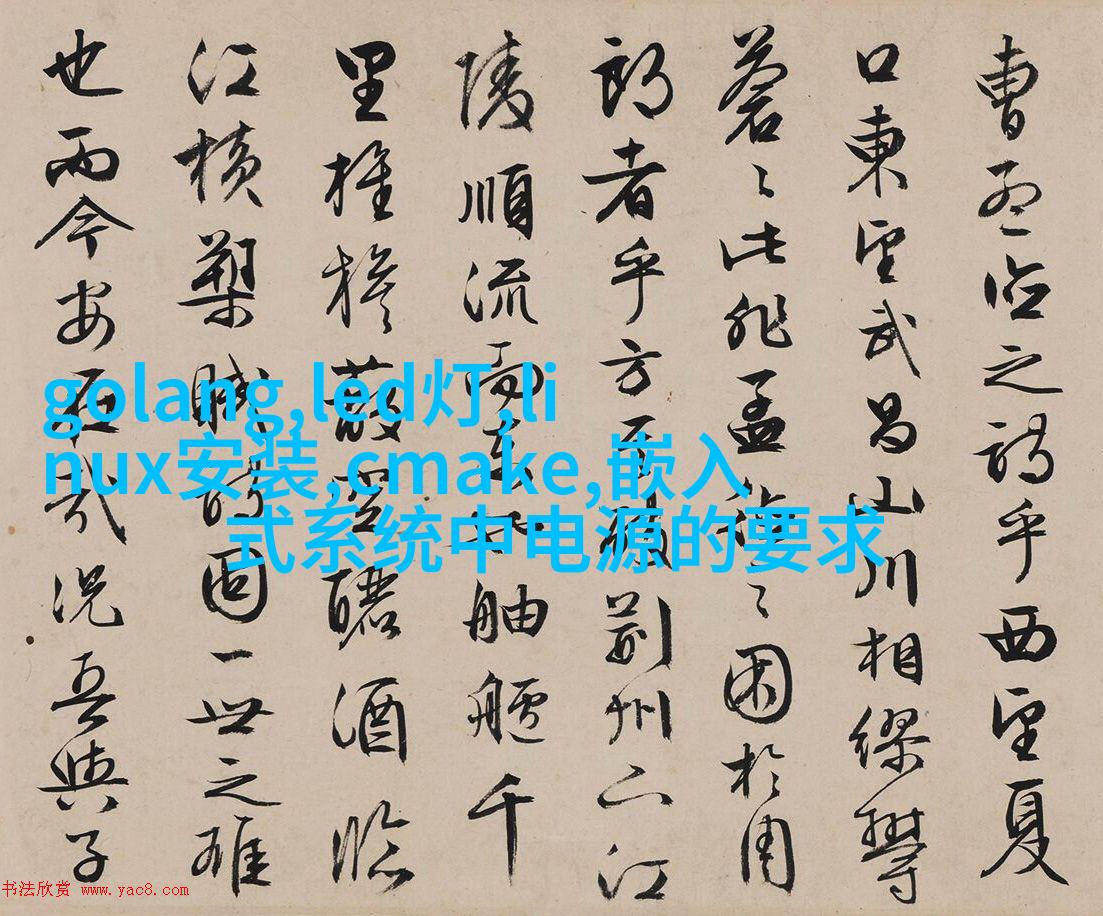 曹孟德之詩乎西望夏
口東望武昌山川相繆鬱
蒼〻此非孟德之困於周
郎者乎方其破荊州下江
陵順流而東也舳艫千
里旌旗蔽空釃酒臨
江橫槊賦詩固一世之雄
也而今安在哉況吾與子
golang,led灯,li
nux安装,cmake,嵌入
式系统中电源的要求
书法欣赏 www.yac8.com